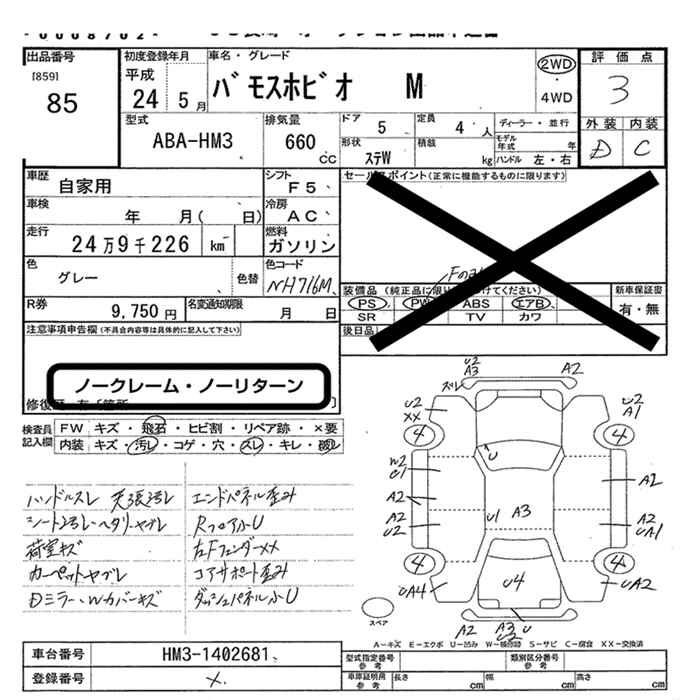 出品番号
[859]
85
初度登録年月
平成
24 5月
車名・グレード
バモスホビオ M
2WD
・
4WD
評価点
3
型式
ABA-HM3
排気量
660
cc
ドア
5
定員
4 人
形状
ステW
積載
kg
ディーラー・並行
モデル年式 年
ハンドル 左・右
外装 内装
D C
車歴
自家用
シフト
F5
車検
年 月( 日)
冷房
AC
走行
24万9千226 km
燃料
ガソリン
色
グレー
色替
色コード
NH716M
R券
9,750円
名変通知期限
月 日
セールスポイント(正常に機能するものに限ります)
装備品(純正品に限り
けてください)
PS PW ABS エアB
SR TV カワ
新車保証書
有・無
後日品
注意事項申告欄(不具合内容等は具体的に記入して下さい)
ノークレーム・ノーリターン
検査員
記入欄
FW キズ・飛石・ヒビ割・リペア跡・×要
内装 キズ・汚レ・コゲ・穴・スレ・キレ・破レ
ハンドルスレ 天張汚レ
シート汚レ・ヘタリ・ヤブレ
荷室キズ
カーペットヤブレ
Dミラー・Wカバーキズ
エンドパネル歪み
RフロアかU
左Fフェンダーxx
コアサポート歪み
ダッシュパネル小U
U2
A3
A2
スレ
U2
XX
U2
A1
4
4
U
W2
U1
A2
A2
U2
U1
A3
A2
A2
UA1
4
4
UA4
U4
UA2
スペア
A2
A3
U2
U
A-キズ E-エクボ U-凹み W-補修跡 S-サビ C-腐食 XX-交換済
車台番号
HM3-1402681
登録番号
型式指定番号
参考
類別区分番号
参考
車庫証明用
参考
長さ cm
幅 cm
高さ cm